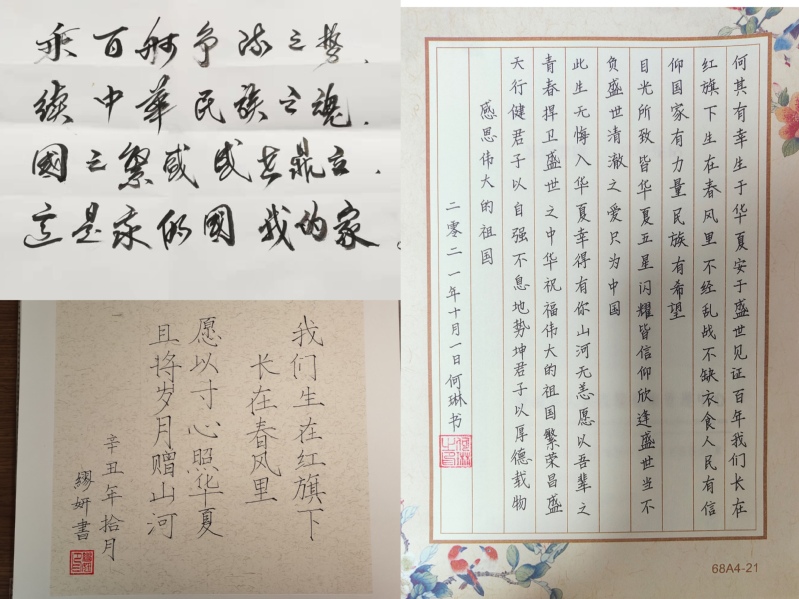 乘百舸争流之势，
续中華民族之魂，
國之繁
這是的國 我的家。
我们生在红旗下
长在春风里
愿以寸心照华夏
且将岁月赠山河
辛丑年拾月
缪妍書
何其有幸生于华夏安于盛世见证百年我们长在
红旗下生在春风里不经乱战不缺衣食人民有信
仰国家有力量民族有希望
目光所致皆华夏五星闪耀皆信仰欣逢盛世当不
负盛世清澈之爱只为中国
此生无悔入华夏幸得有你山河无恙愿以吾辈之
青春捍卫盛世之中华祝福伟大的祖国繁荣昌盛
天行健君子以自强不息地势坤君子以厚德载物
感恩伟大的祖国
二零二一年十月一日何琳书
68A4-21